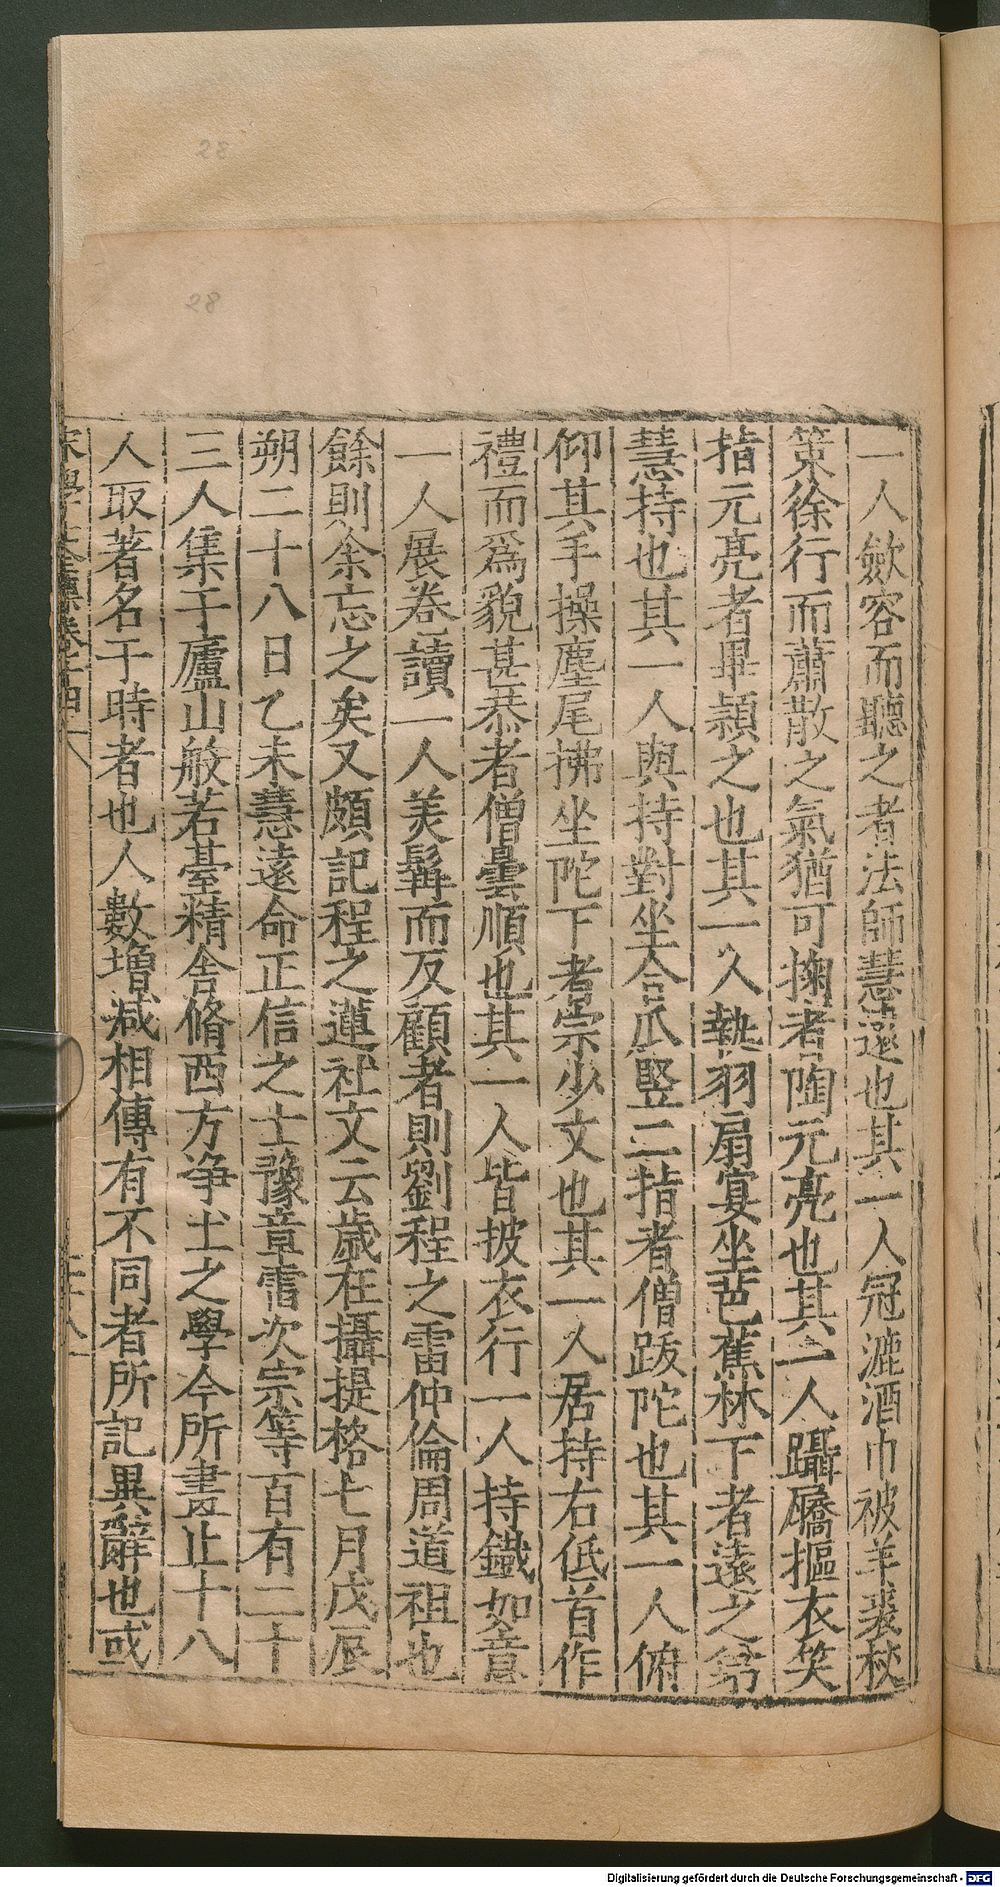 一人斂容而聽之者法師慧遠也其一人冠漉酒巾被羊裘杖
策徐行而蕭散之氣猶可掬者陶元亮也其一人躡屩摳衣笑
指元亮者畢頴之也其一人執羽扇宴坐芭蕉林下者遠之弟
慧持也其一人與持對坐合爪竪二指者僧跋陀也其一人俯
仰其手操麈尾拂坐陀下者宗少文也其一人居持右低首作
禮而爲貌甚恭者僧曇順也其一人皆披衣行一人持鐵如意
一人展卷讀一人美髯而反顧者則劉程之雷仲倫周道祖也
餘則余忘之矣又頗記程之蓮社文云歲在攝提格七月戊辰
朔二十八日乙未慧遠命正信之士豫章雷次宗等百有二十
三人集于廬山般若臺精舍脩西方淨土之學今所畫止十八
人取著名于時者也人數增減相傳有不同者所記異辭也或
宋學士全集卷之十四
二十八
28
28
Digitalisierung gefördert durch die Deutsche Forschungsgemeinschaft - DFG